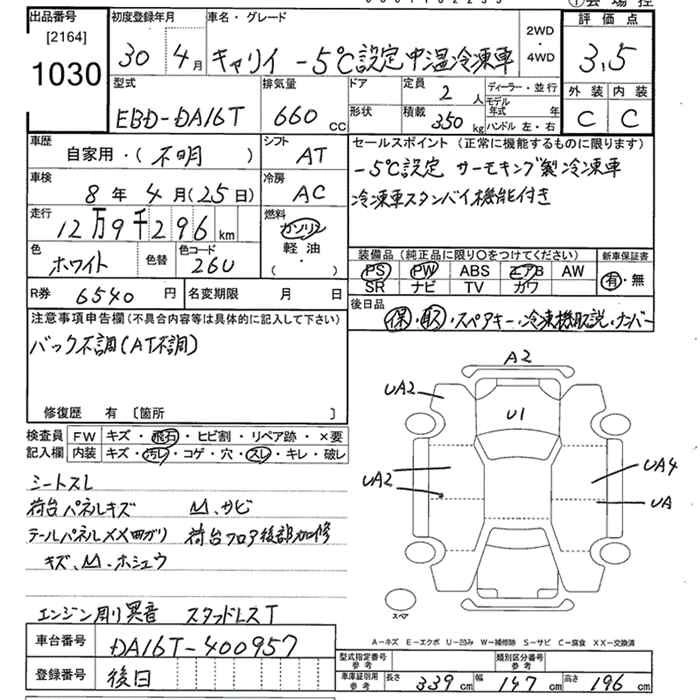 出品番号
[2164]
1030
初度登録年月
30 4月
車名・グレード
キャリイ -5℃設定中温冷凍車
2WD
・
4WD
評価点
3.5
外装 内装
C C
型式
EBD-DA16T
排気量
660 cc
ドア
形状
定員
2 人
積載
350 kg
ディーラー・並行
モデル年式 年
ハンドル 左・右
車歴
自家用・(不明)
シフト
AT
車検
8年4月(25日)
冷房
AC
走行
12万9千296 km
燃料
ガソリン
軽油
( ・ )
色
ホワイト
色替
色コード
26U
R券 6540円
名変期限 月 日
セールスポイント(正常に機能するものに限ります)
-5℃設定 サーモキング製冷凍車
冷凍車スタンバイ機能付き
装備品(純正品に限り〇をつけてください)
PS PW ABS エアB AW
SR ナビ TV カワ
新車保証書
有・無
後日品
保・取・スペアキー・冷凍機取説・ナンバー
注意事項申告欄(不具合内容等は具体的に記入して下さい)
バック不調(AT不調)
修復歴 有 〔箇所 〕
検査員
記入欄
FW キズ・飛石・ヒビ割・リペア跡・×要
内装 キズ・汚レ・コゲ・穴・スレ・キレ・破レ
シートスレ
荷台パネルキズ 凹、サビ
テールパネルXX曲ガリ 荷台フロア後部加修
キズ、凹・ホシュウ
エンジン廻リ異音 スタッドレスT
A2
UA2
U1
UA2
UA4
UA
スペア
A-キズ E-エクボ U-凹み W-補修跡 S-サビ C-腐食 XX-交換済
車台番号 DA16T-400957
登録番号 後日
型式指定番号 参考
類別区分番号 参考
車庫証明用 参考
長さ 339 cm 幅 147 cm 高さ 196 cm